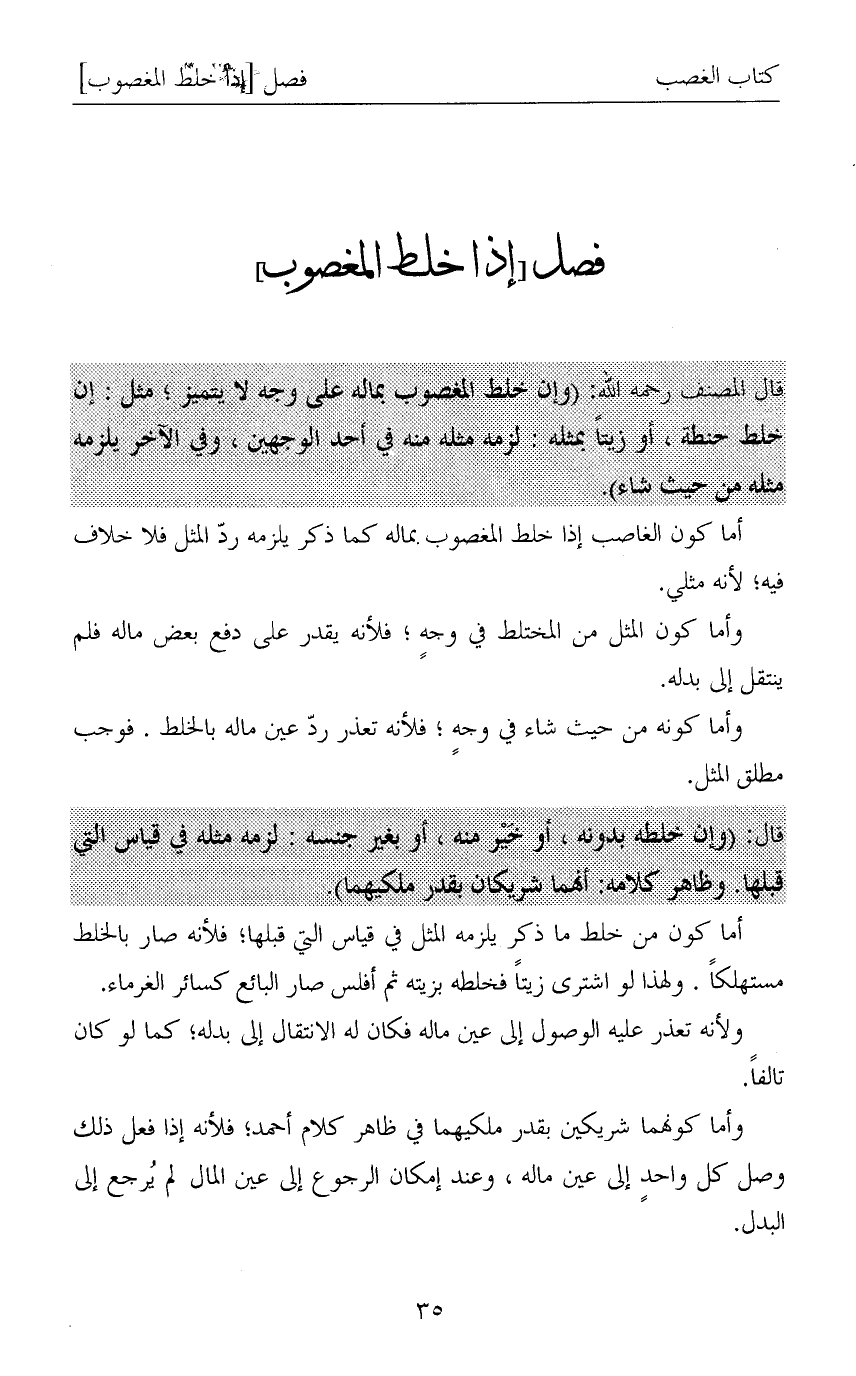 كتاب الغصب
فصل [إذا خلط المغصوب]
فصل [إذا خلط المغصوب]
قال المصنف رحمه الله: (وإن خلط المغصوب بماله على وجه لا يتميز ؛ مثل : إن
خلط حنطة ، أو زيتاً بمثله : لزمه مثله منه في أحد الوجهين ، وفي الآخر يلزمه
مثله من حيث شاء).
أما كون الغاصب إذا خلط المغصوب بماله كما ذكر يلزمه ردّ المثل فلا خلاف
فيه؛ لأنه مثلي.
وأما كون المثل من المختلط في وجهٍ ؛ فلأنه يقدر على دفع بعض ماله فلم
ينتقل إلى بدله.
وأما كونه من حيث شاء في وجهٍ ؛ فلأنه تعذر ردّ عين ماله بالخلط . فوجب
مطلق المثل.
قال: (وإن خلطه بدونه ، أو خَيْر منه ، أو بغير جنسه : لزمه مثله في قياس التي
قبلها. وظاهر كلامه: أنهما شريكان بقدر ملكيهما).
أما كون من خلط ما ذكر يلزمه المثل في قياس التي قبلها؛ فلأنه صار بالخلط
مستهلكاً . ولهذا لو اشترى زيتاً فخلطه بزيته ثم أفلس صار البائع كسائر الغرماء.
ولأنه تعذر عليه الوصول إلى عين ماله فكان له الانتقال إلى بدله؛ كما لو كان
تالفاً.
وأما كونهما شريكين بقدر ملكيهما في ظاهر كلام أحمد؛ فلأنه إذا فعل ذلك
وصل كل واحدٍ إلى عين ماله ، وعند إمكان الرجوع إلى عين المال لم يُرجع إلى
البدل.
٣٥